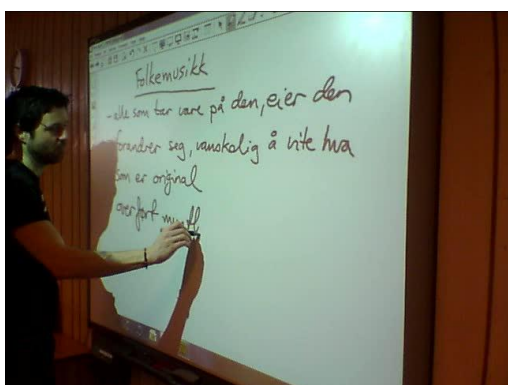 Folkemusikk
- alle som tar vare på den, eier den
forandrer seg, vanskelig å vite hva
som er original
overført